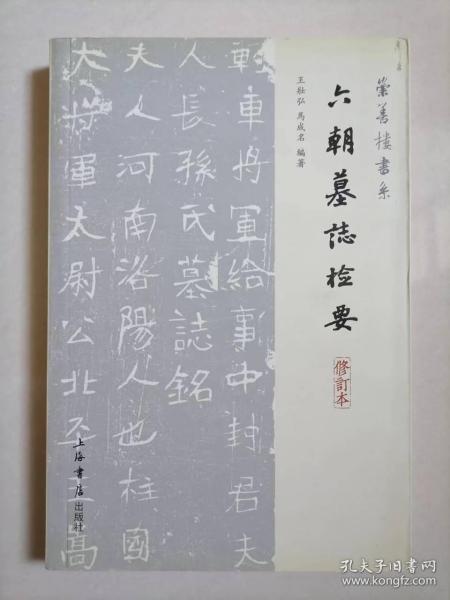 崇善楼书系
六朝墓誌检要
修訂本
王壯弘 馬成名 編著
軺車将軍給事中封君夫
人長孫氏墓誌銘
夫人河南洛陽人也柱國
大将軍太尉公北平王高
上海書店出版社
孔夫子旧书网
www.kongfz.com